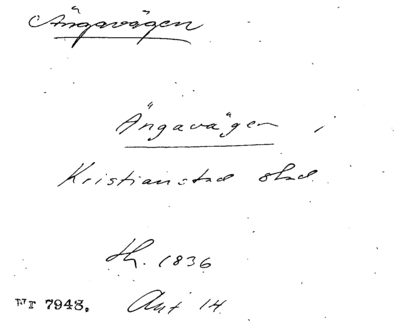 Ängavägen
Ängavägen,
Kristianstad stad.
th. 1836
Nr 7948. Ant 14.